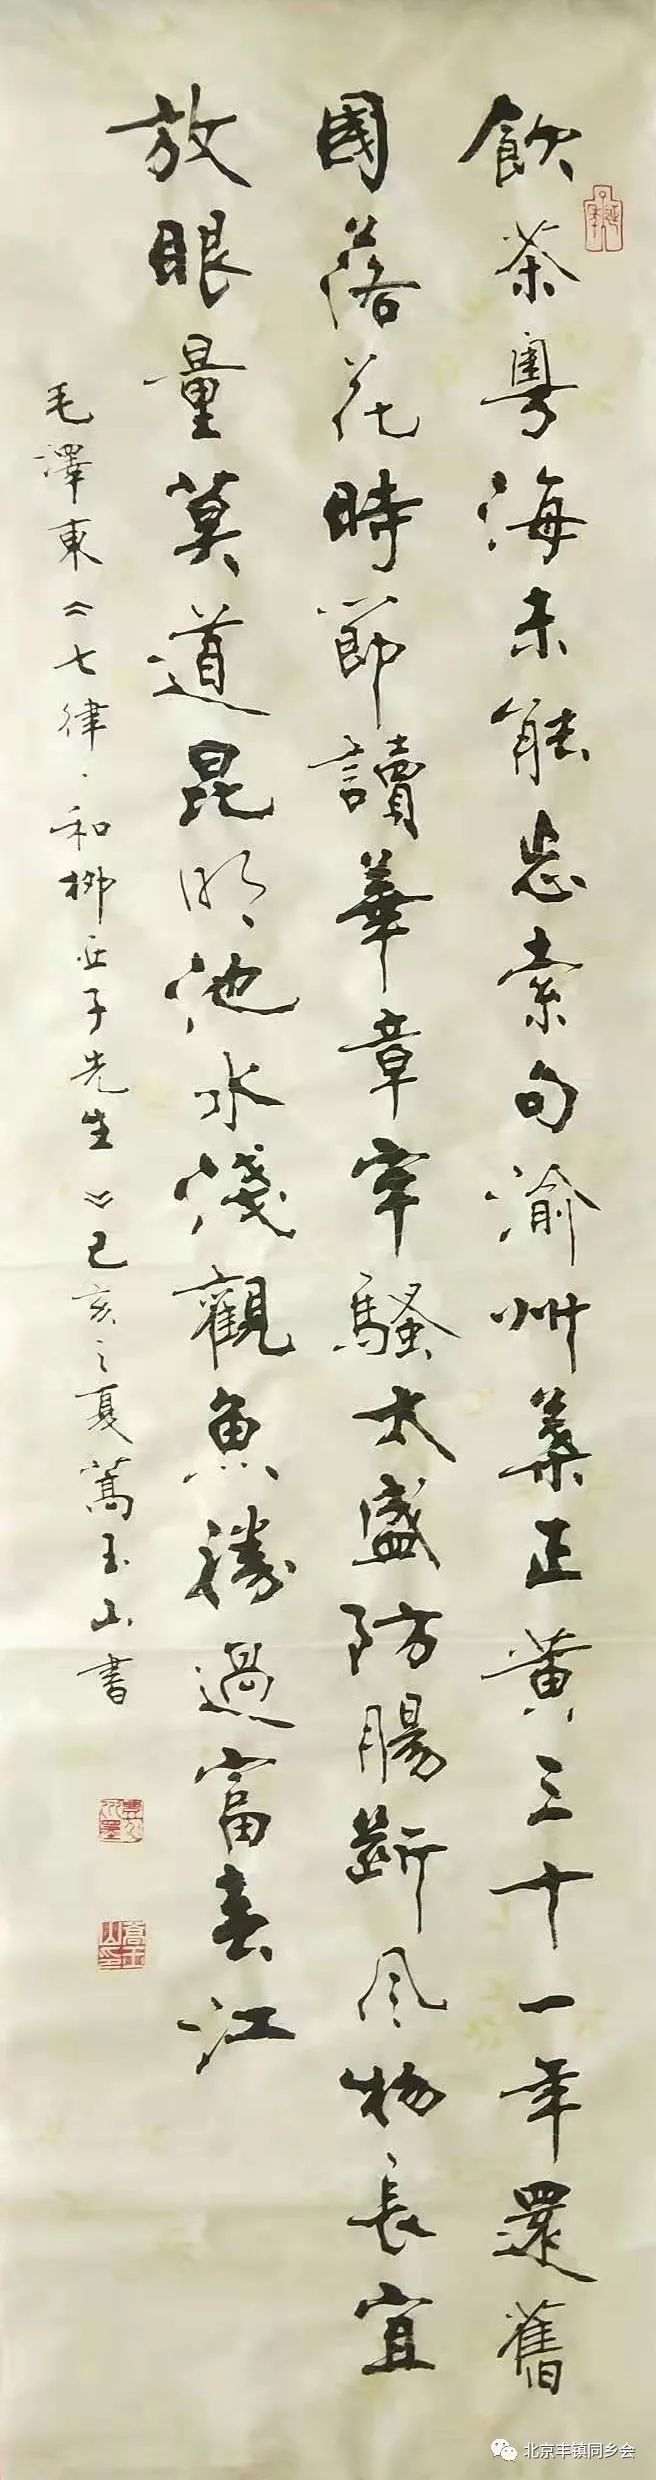 飲茶粵海未能忘索句渝州葉正黃三十一年還舊
國落花時節讀華章牢騷太盛防腸斷風物長宜
放眼量莫道昆明池水淺觀魚勝過富春江
毛澤東《七律·和柳亞子先生》己亥之夏蒿玉山書
北京丰镇同乡会